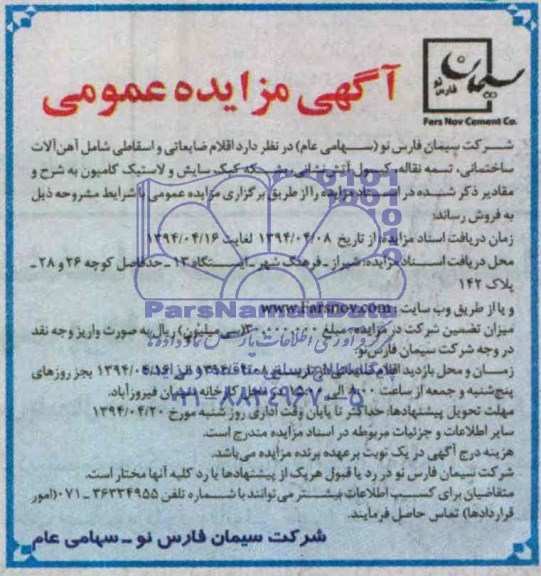 سیمان
فارس نو
Fars Nov Cement Co.
آگهی مزایده عمومی
شرکت سیمان فارس نو (سهامی عام) در نظر دارد اقلام ضایعاتی و اسقاطی شامل آهن‌آلات
ساختمانی، تسمه نقاله، کپسول آتش‌نشانی، بشکه کمک سایش و لاستیک کامیون به شرح و
مقادیر ذکر شده در اسناد مزایده را از طریق برگزاری مزایده عمومی با شرایط مشروحه ذیل
به فروش رساند:
زمان دریافت اسناد مزایده: از تاریخ ۱۳۹۴/۰۴/۰۸ لغایت ۱۳۹۴/۰۴/۱۶
محل دریافت اسناد مزایده: شیراز ـ فرهنگ شهر ـ ایستگاه ۱۳ ـ حدفاصل کوچه ۲۶ و ۲۸ ـ
پلاک ۱۴۲
ParsNamadData
و یا از طریق وب سایت: www.Farsnov.com
میزان تضمین شرکت در مزایده: مبلغ (سی میلیون) ریال به صورت واریز وجه نقد
در وجه شرکت سیمان فارس نو.
زمان و محل بازدید اقلام ۱۳۹۴/۰۴/۱۶ بجز روزهای
پنج‌شنبه و جمعه از ساعت ۸:۰۰ الی کارخانه سیمان فیروزآباد.
۰۲۱-۸۸۳۴۹۶۷۰-۵
مهلت تحویل پیشنهادها: حداکثر تا پایان وقت اداری روز شنبه مورخ ۱۳۹۴/۰۴/۲۰
سایر اطلاعات و جزئیات مربوطه در اسناد مزایده مندرج است.
هزینه درج آگهی در یک نوبت بر عهده برنده مزایده می‌باشد.
شرکت سیمان فارس نو در رد یا قبول هریک از پیشنهادها یا رد کلیه آنها مختار است.
متقاضیان برای کسب اطلاعات بیشتر می‌توانند با شماره تلفن ۳۶۳۳۴۹۵۵ ـ ۰۷۱ (امور
قراردادها) تماس حاصل فرمایند.
شرکت سیمان فارس نو ـ سهامی عام